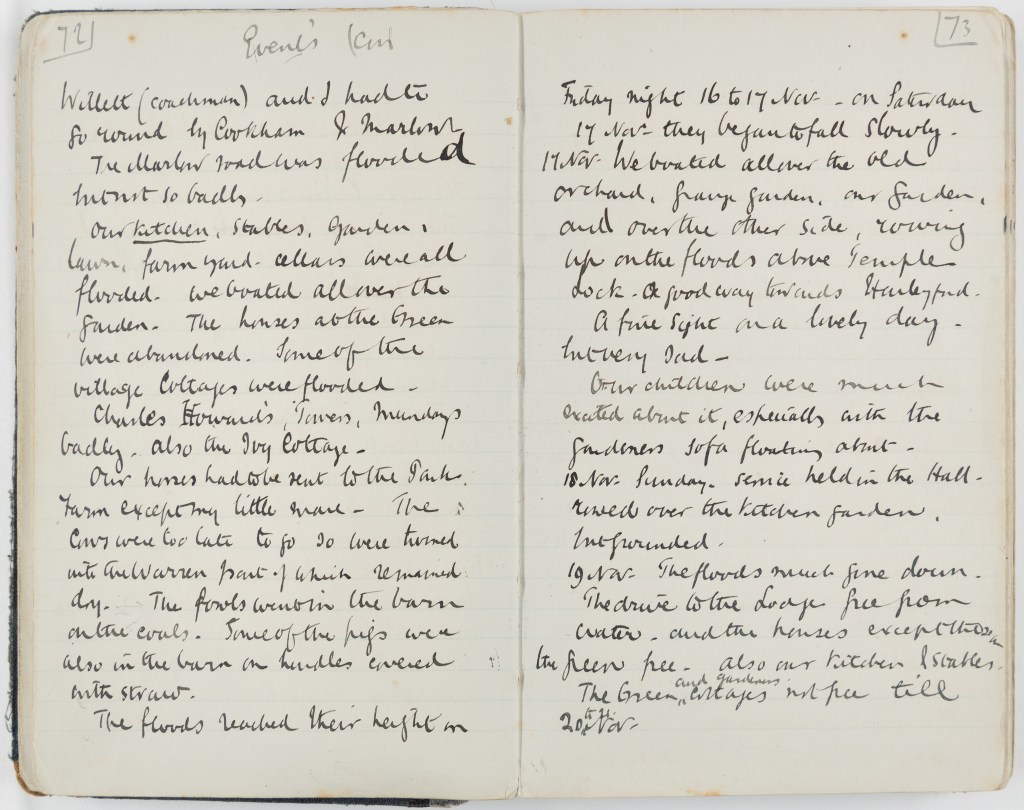 72
Events (con
Willett (coachman) and I had to
go round by Cookham & Marlow
The Marlow road was flooded
but not so badly.
Our kitchen, stables, garden,
lawn, farm yard - cellars were all
flooded. We boated all over the
garden. The houses at the Green
were abandoned. Some of the
village Cottages were flooded -
Charles Howard's, Towers, Mundays
badly. also the Ivy Cottage -
Our horses had to be sent to the Park
Farm except my little mare - The
Cows were too late to go so were turned
into the Warren part of which remained
dry. The fowls went in the barn
on the coals. Some of the pigs were
also in the barn on hurdles covered
with straw.
The floods reached their height on
73
Friday night 16 to 17 Nov - on Saturday
17 Nov they began to fall slowly.
17 Nov. We boated all over the old
orchard, Grange garden, our garden,
and over the other side, rowing
up on the floods above Temple
Lock - a good way towards Harleyford.
A fine sight on a lovely day -
but very sad -
Our children were much
excited about it, especially with the
gardeners sofa floating about -
18 Nov. Sunday. service held in the Hall -
rowed over the kitchen garden,
but grounded.
19 Nov. The floods much gone down.
The drive to the Lodge free from
water - and the houses except those on
the green free - also our kitchen & stables.
The Green, and gardeners Cottages not free till
20th Nov -